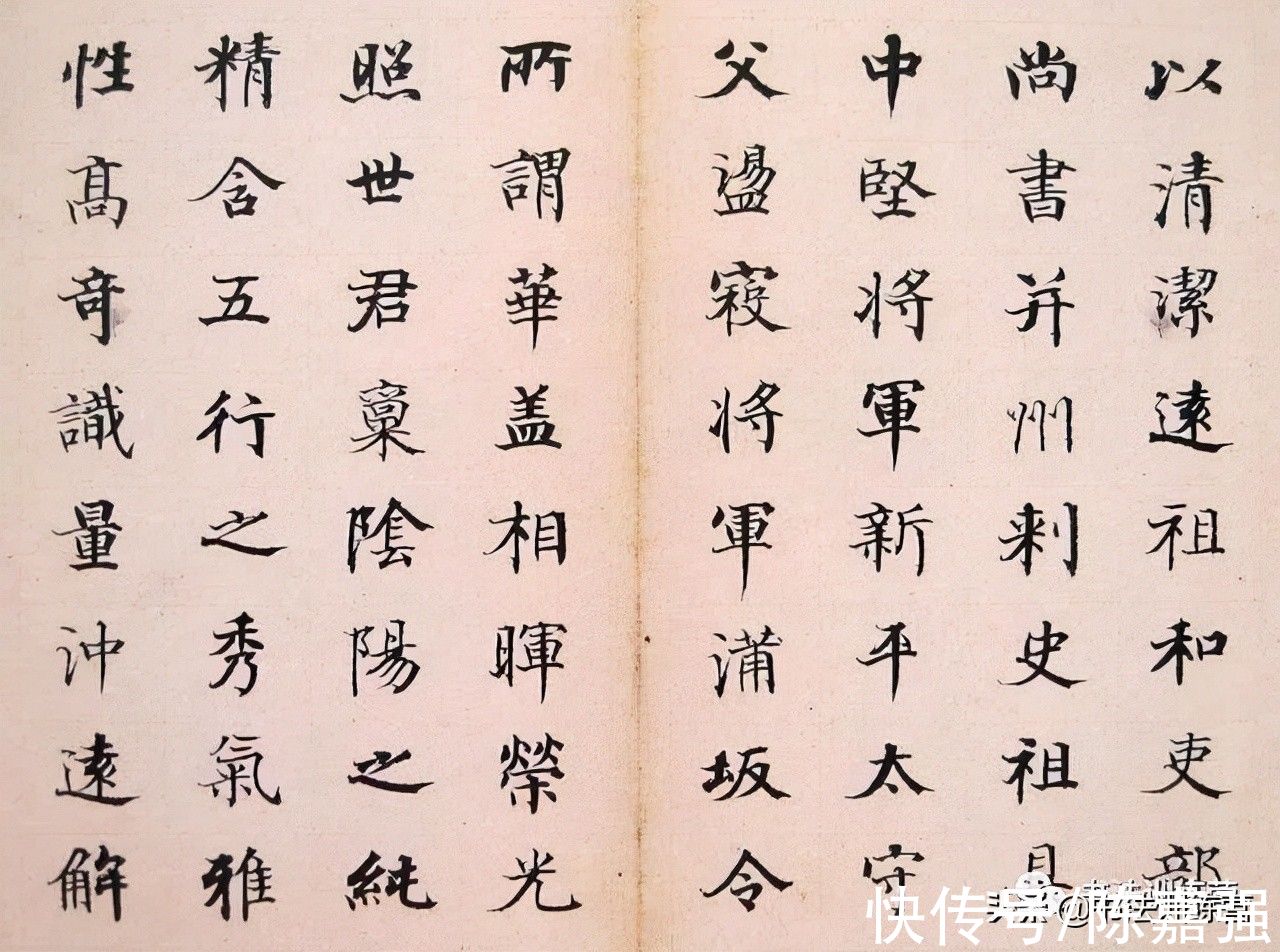 以清潔遠祖和吏部
尚書并州刺史祖具
中堅將軍新平太守
父盪寇將軍蒲坂令
所謂華蓋相暉榮光
照世君稟陰陽之純
精含五行之秀氣雅
性高奇識量沖遠解
快传号/陈嘉强